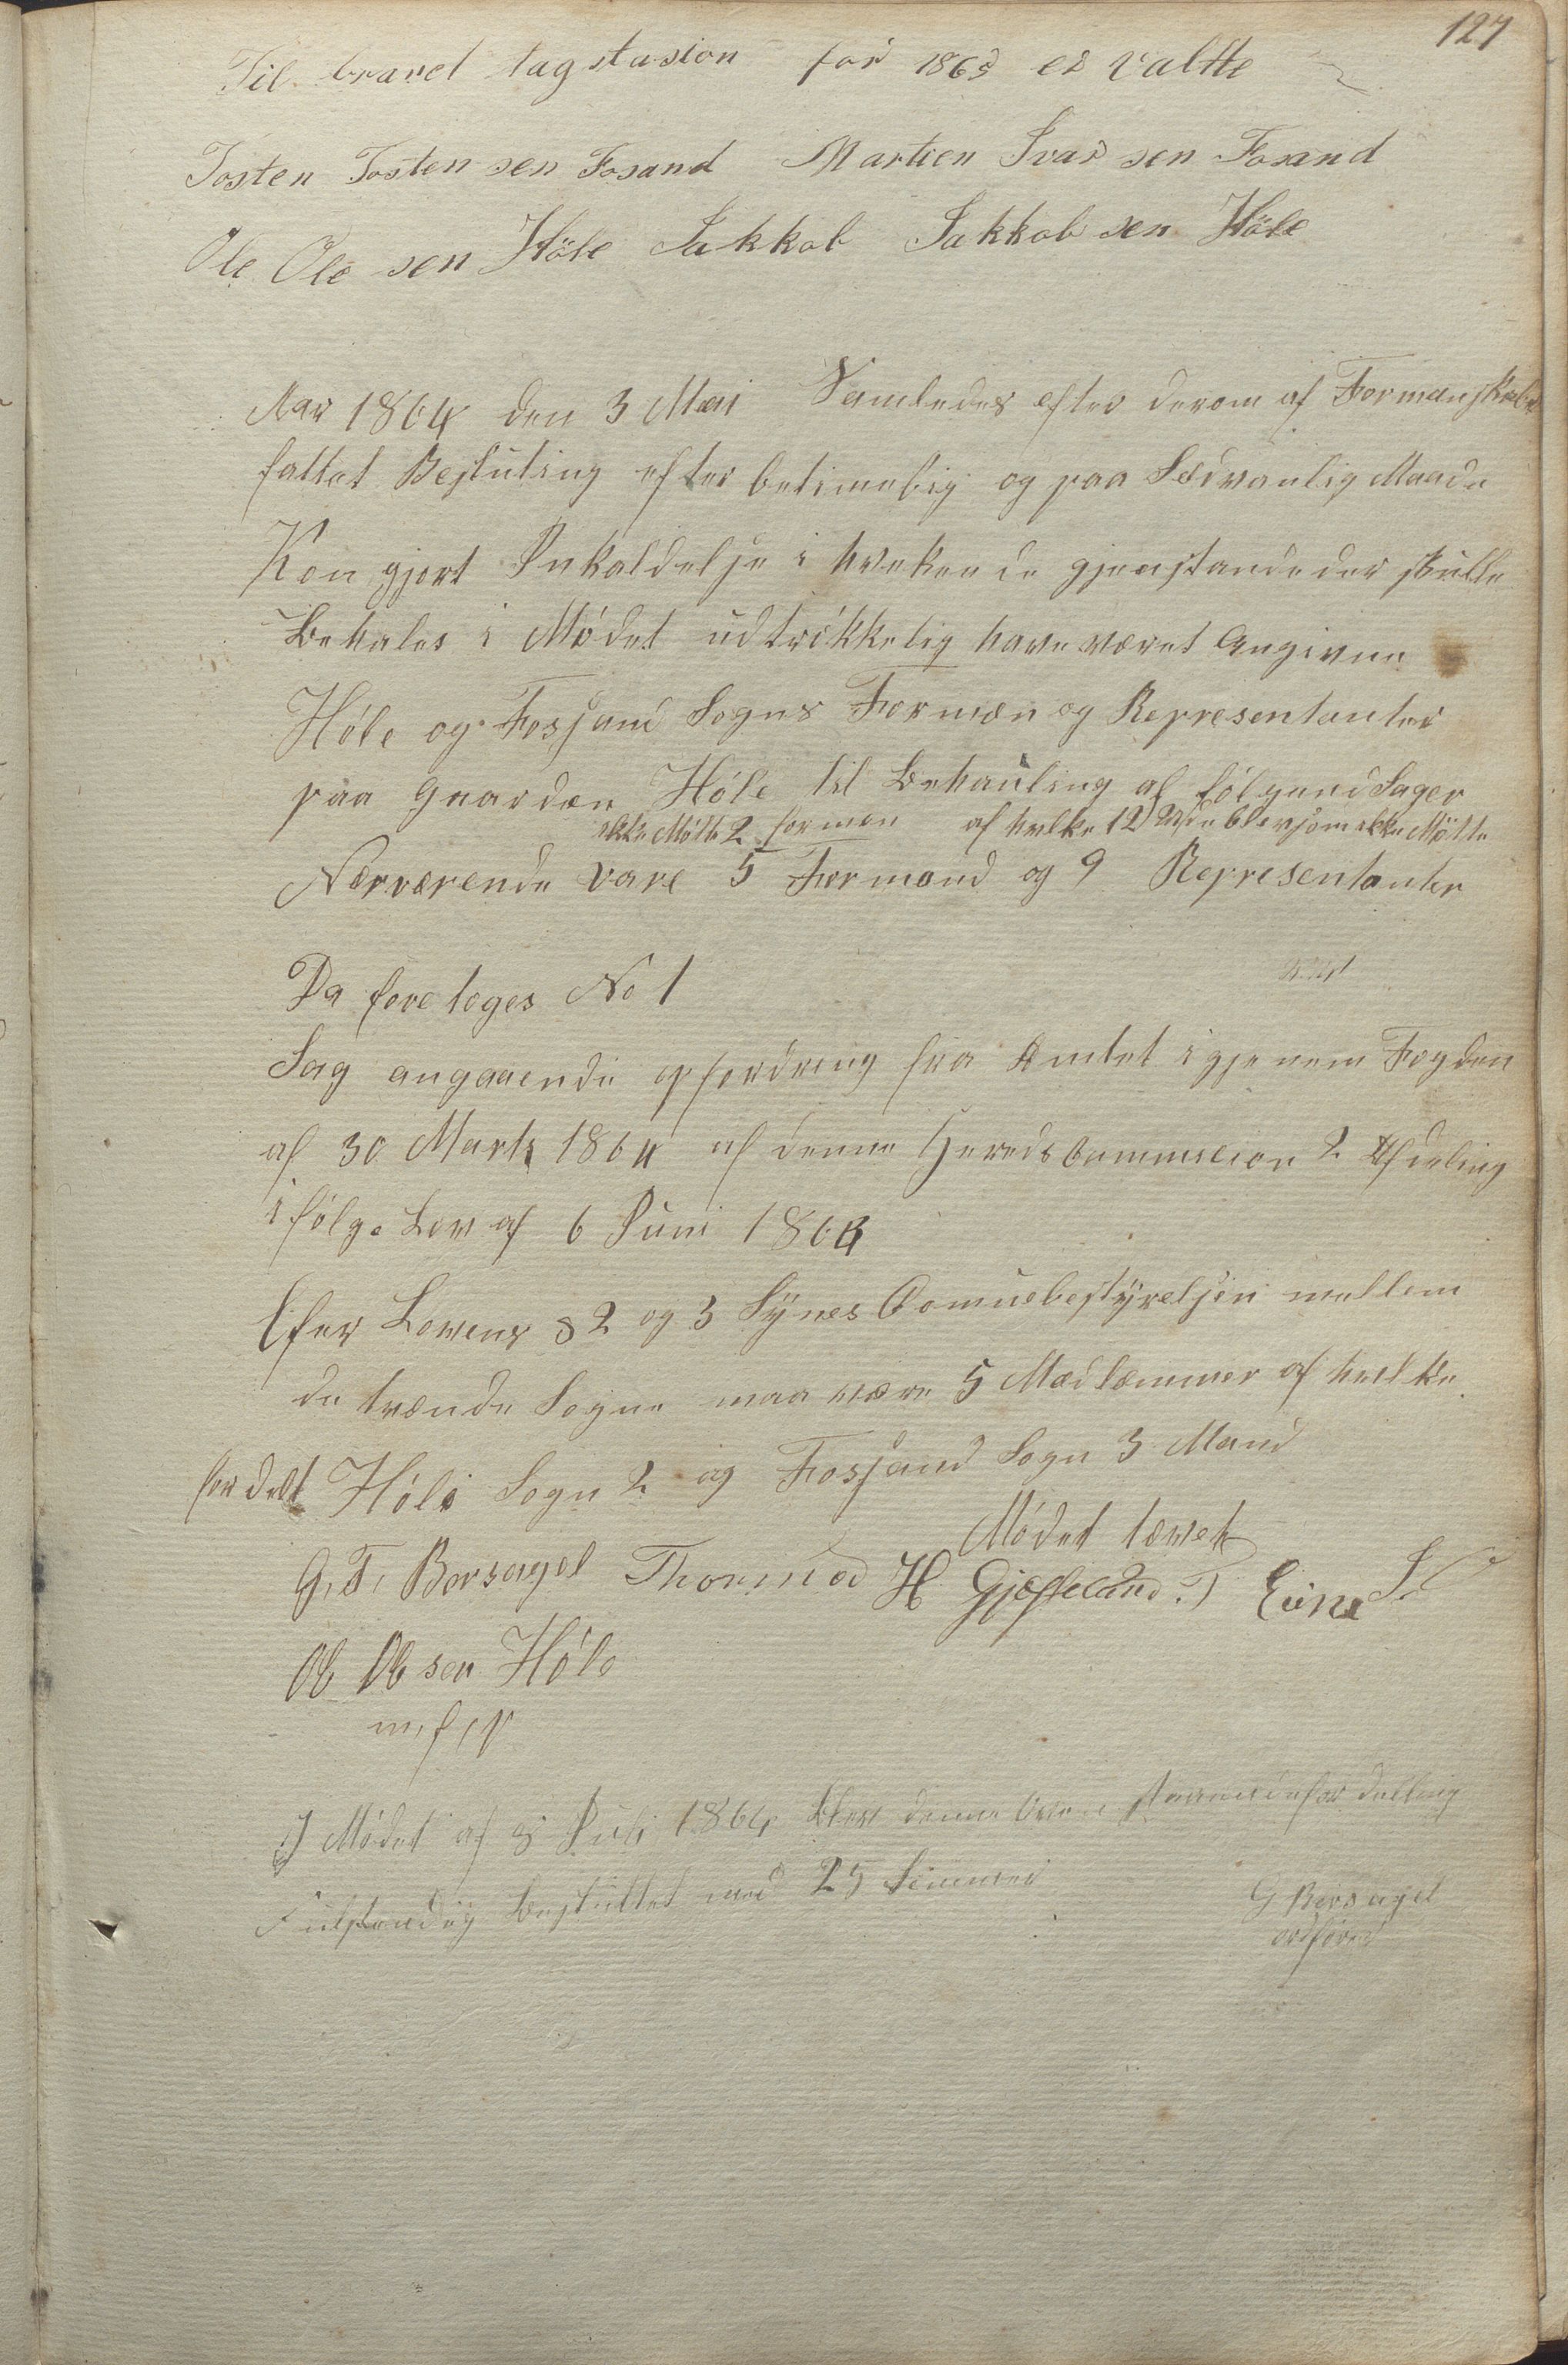 127
Til brand tagstasion for 1865 er valtte
Tosten Tosten sen Fosand Martien Ivar sen Fosand
Ole Ole sen Höle Jakkob Jakkob sen Höle
Aar 1864 den 3 Mai Samledes efter derom af Formænskabet
fattet Besluting efter betimelig og paa Sædvanlig Maade
Kon gjort Inkaldelse i hvekende gjenstande der skulle
Behales i Mödet udtrökkelig have været Angivne
Höle og Fossand Sogns Formæn og Representanter
paa Gaarden Höle til Behanling af fölgend Sager
ikke Mötte 2 formæn af hvelke 12 Valde blev som ikke Mötte
Nærværende vare 5 Formænd og 9 Representanter
Da foretoges No 1
Sag angaaende opfordring fra Amtet igjenem Fogden
af 30 Marts 1864 af denne Heredskommission 2 Afdeling
ifölge Lov af 6 Juni 1863
Efter Lovens § 2 og 3 Synes Comunebestyrelsen mellem
de tvende Sogne maa være 5 Medlemmer af hvelke
fordelt Höle Sogn 2 og Fossand Sogn 3 Mand
Mödet hævet
G. T. Bersagel Thormod H Gjesteland. T Eine
Ole Ole sen Höle
m, f, P
I Mödet af 8 Juli 1864 blev denne oven staaendefordelling
Fulstendig besluttet med 25 Stimmer
G Bersagel
ordförer